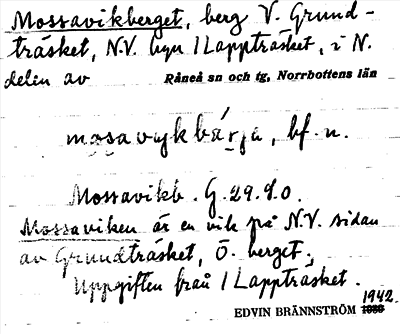 Mossavikberget, berg V. Grund-
träsket, N.V. byn 1 Lappträsket, i N.
delen av Råneå sn och tg, Norrbottens län
mo̤sa̤vykbár̤ja, bf. n.
Mossavikb. G. 29. 9. O.
Mossaviken är en vik på N.V. sidan
av Grundträsket, Ö. berget.
Uppgiften från 1 Lappträsket.
EDVIN BRÄNNSTRÖM 1942